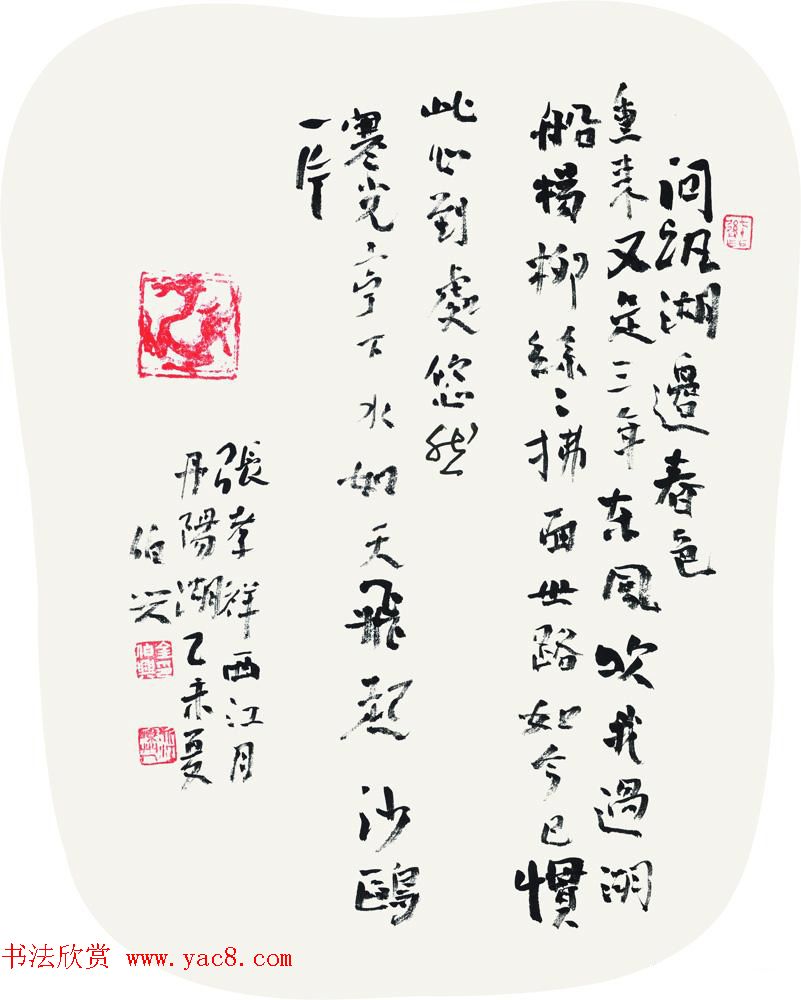 问訊湖邊春色
重来又是三年东风吹我過湖
船楊柳絲〻拂面世路如今已慣
此心到處悠然
寒光亭下水如天飛起沙鷗
一片
張孝祥西江月
丹陽湖乙未夏
伯兴
书法欣赏 www.yac8.com